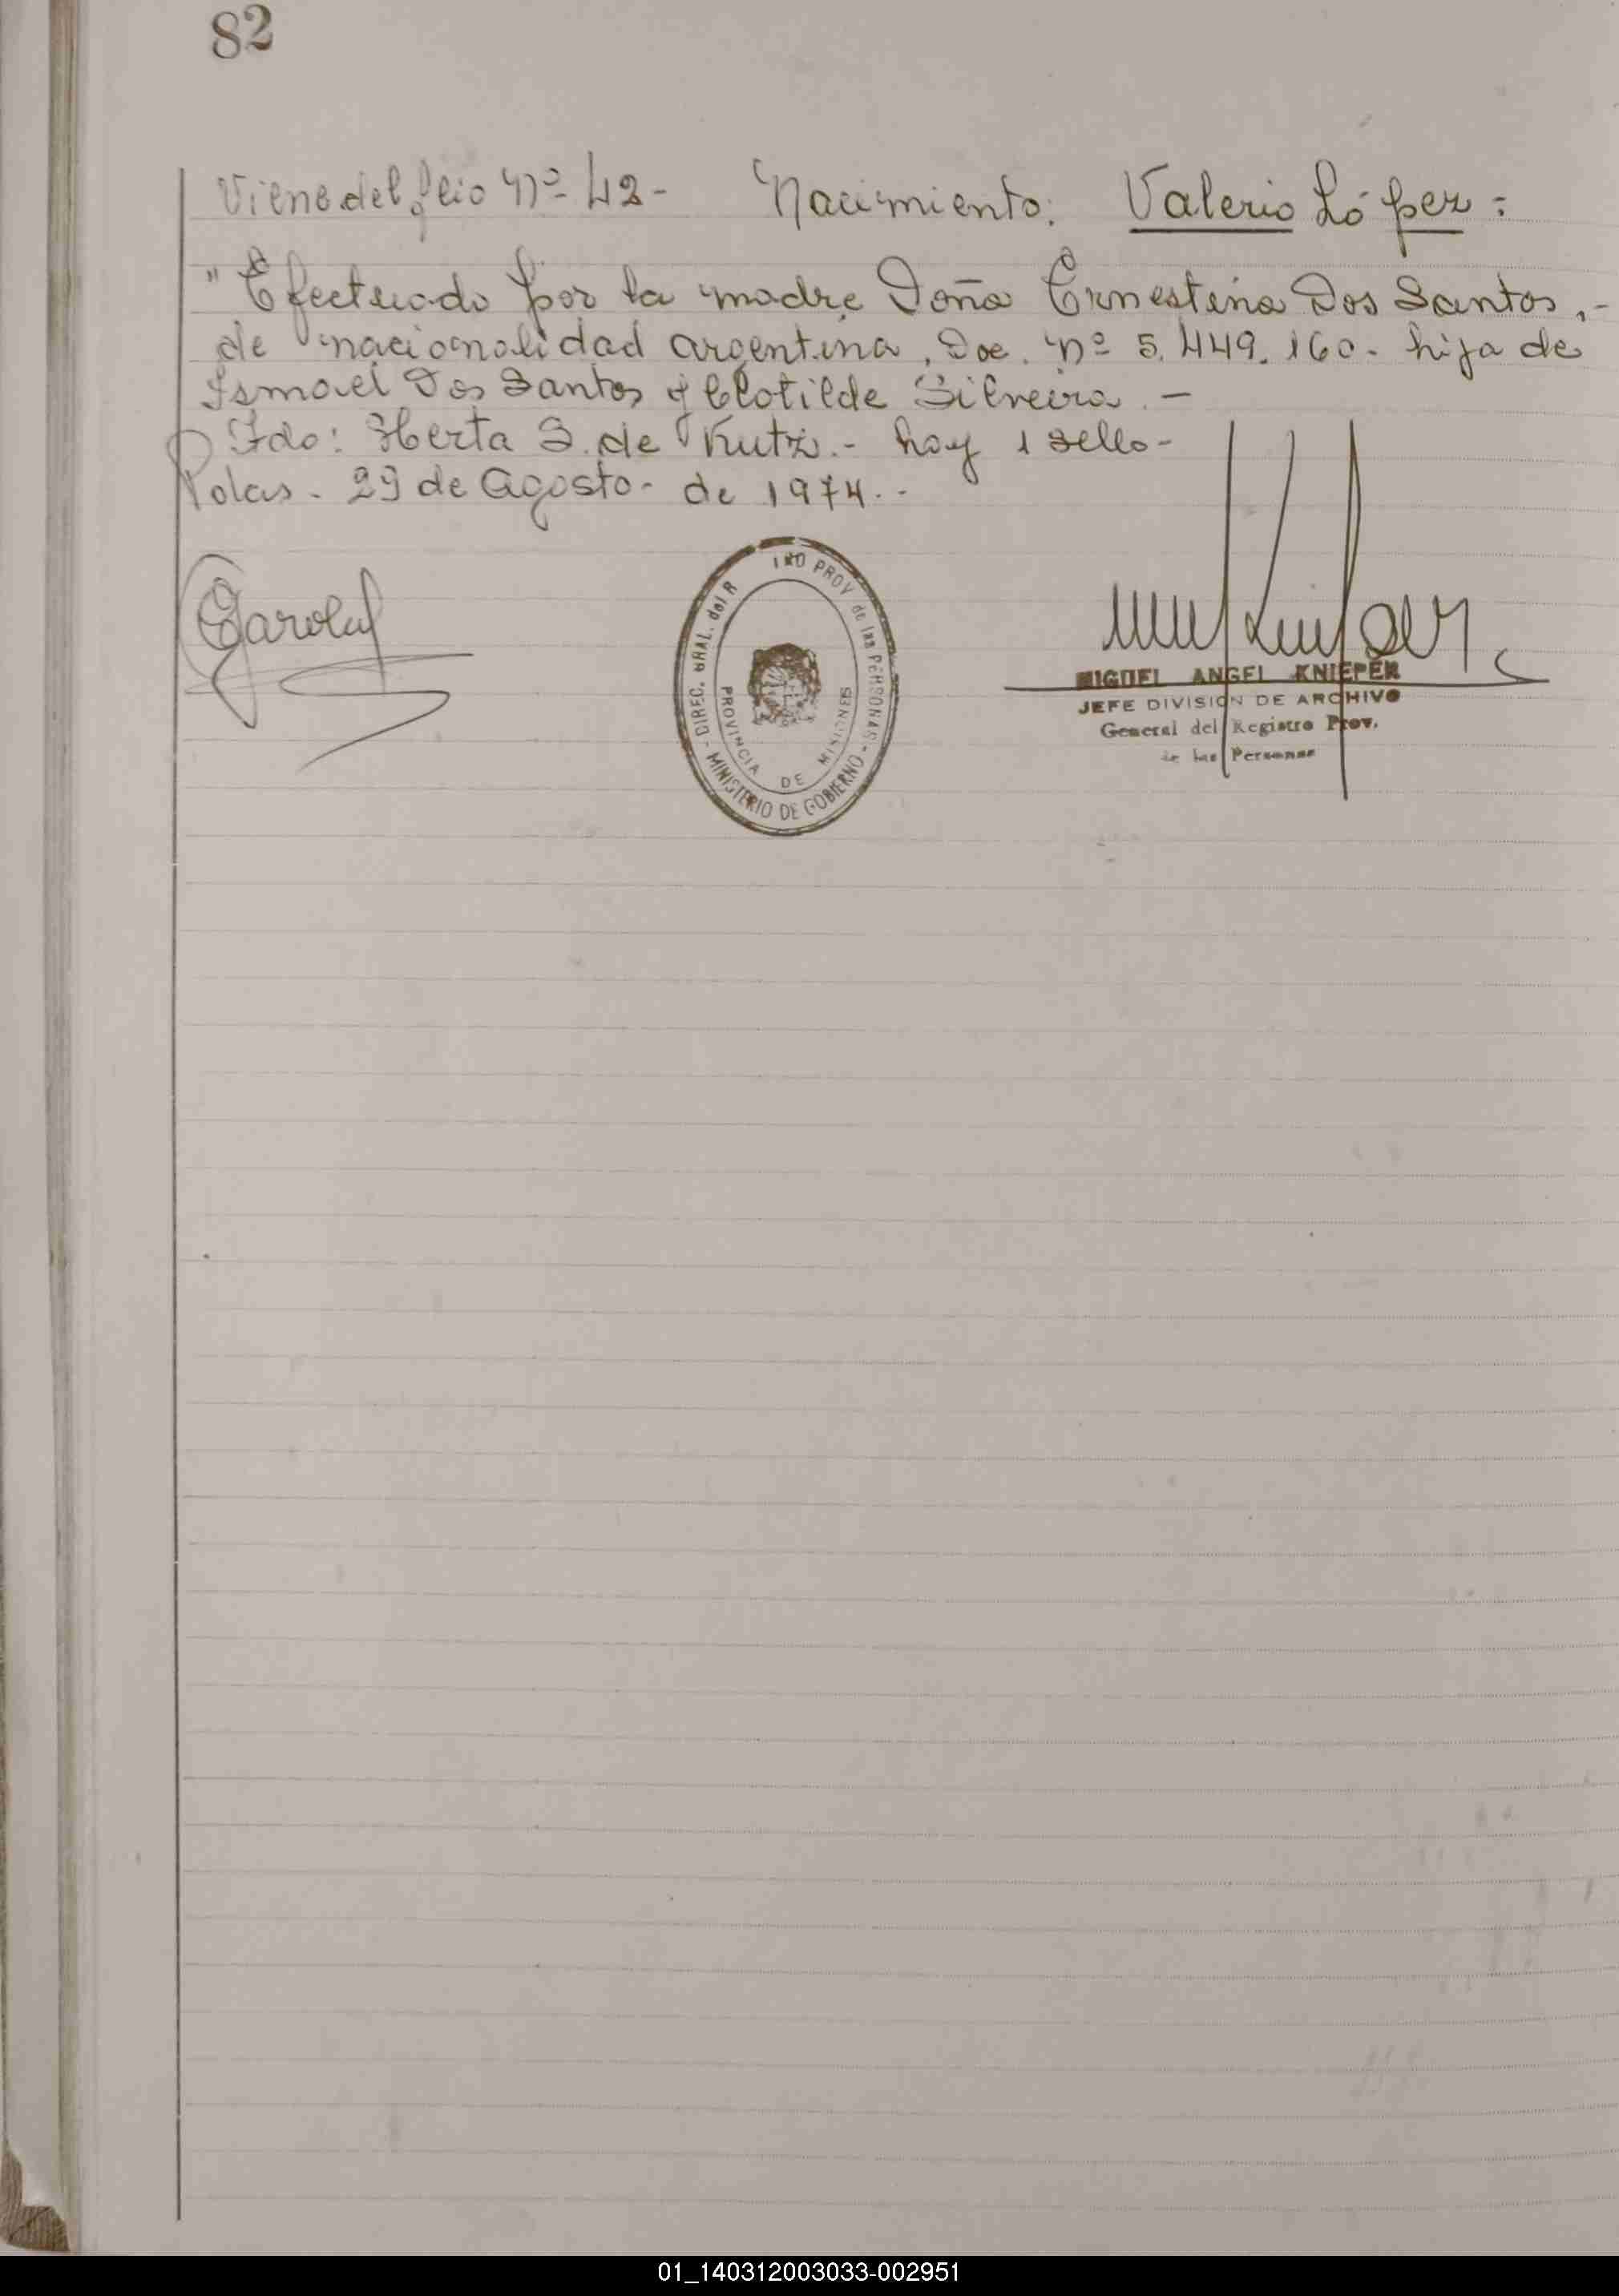 82
Viene del folio Nº 42- Nacimiento: Valerio López:
"Efectuado por la madre Doña Ernestina Dos Santos,-
de nacionalidad argentina, Doc. Nº 5.449.160- hija de
Ismael Dos Santos y Clotilde Silveira.-
Fdo: Herta S. de Kutz.- hay 1 sello-
Pdas- 29 de Agosto- de 1974.-
DIREC. GRAL. del R PROV de las PERSONAS - MINISTERIO DE GOBIERNO -
PROVINCIA DE MISIONES
MIGUEL ANGEL KNIEPER
JEFE DIVISION DE ARCHIVO
General del Registro Prov.
de las Personas
01_140312003033-002951